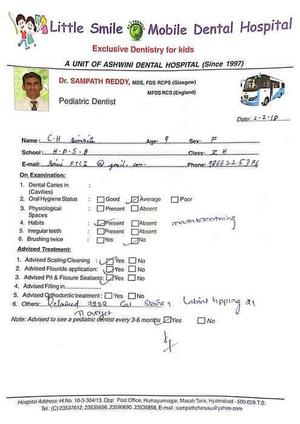 Little Smile Mobile Dental Hospital
Exclusive Dentistry for kids
A UNIT OF ASHWINI DENTAL HOSPITAL (Since 1997)
Dr. SAMPATH REDDY, MDS, FDS RCPS (Glasgow)
MFDS RCS (England)
Pediatric Dentist
Date: 2-2-18
Name: C.H Age: 9 Sex: F
School: H.P.S.B Class: V H
E-mail: @gmail.com Phone:
On Examination:
1. Dental Caries in :
(Cavities)
2. Oral Hygiene Status : Good Average Poor
3. Physiological : Present Absent
Spaces
4. Habits : Present Absent
5. Irregular teeth : Present Absent
6. Brushing twice : Yes No
Adviced Treatment:
1. Advised Scaling/Cleaning : Yes No
2. Advised Flouride application: Yes No
3. Advised Pit & Fissure Sealants: Yes No
4. Advised Filling in
5. Advised Orthodontic treatment : Yes No
6. Others: Retained
Note: Advised to see a pediatric dentist every 3-6 months Yes No
Hospital Address:-H No. 10-3-304/13, Opp: Post Office, Humayunnagar, Masab Tank, Hyderabad - 500 028 T.S.
Tel : (C) 23537612, 23535656, 23590690, 23535858, E-mail : sampathcheruku@yahoo.com